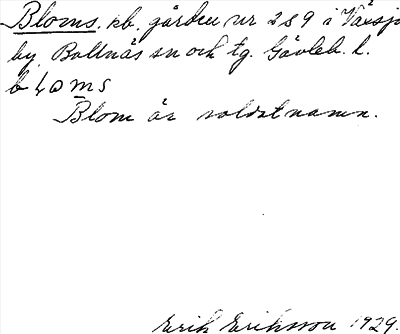 Bloms, kb. gården nr 2 & 9 i Växsjö
by, Bollnäs sn och tg. Gävleb. l.
bl̥oms
Blom är soldatnamn.
Erik Eriksson 1929.